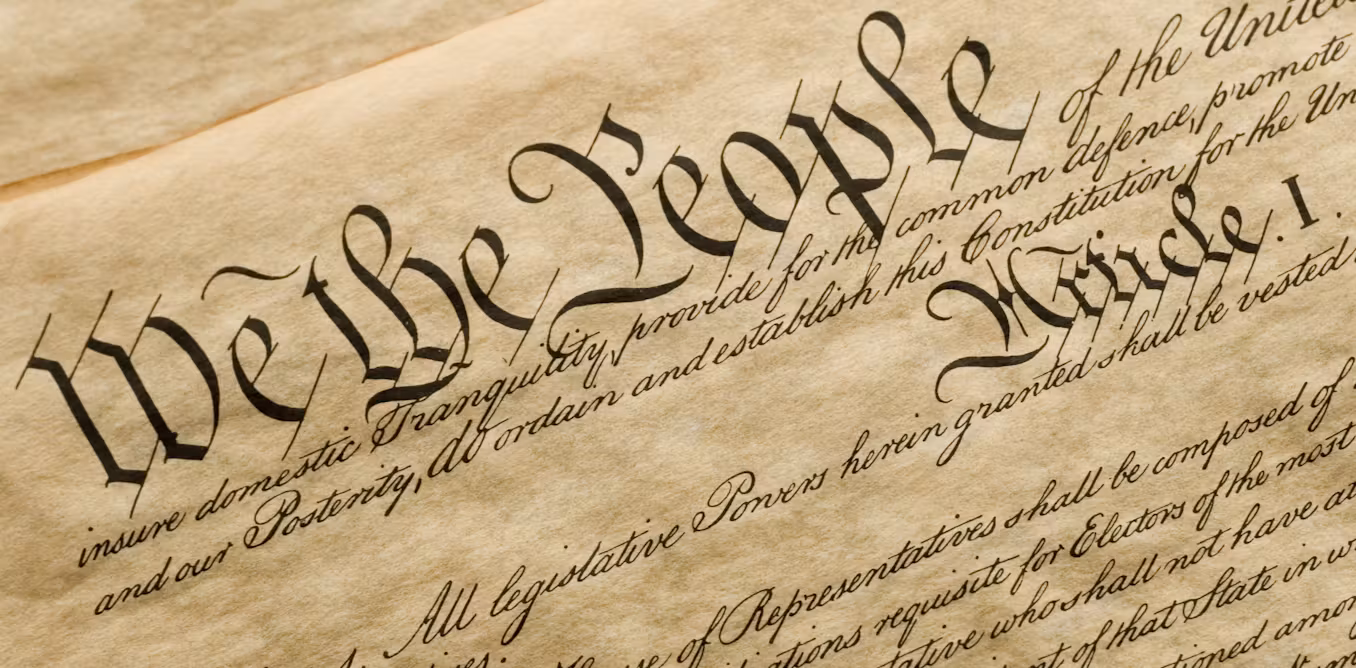 We the People of the United
insure domestic Tranquility, provide for the common defence, promote
and our Posterity, do ordain and establish this Constitution for the Un
Article. I.
All legislative Powers herein granted shall be vested
of Representatives shall be composed of
ations requisite for Electors of the most
tative who shall not have at
nt of that State in w
tioned amon